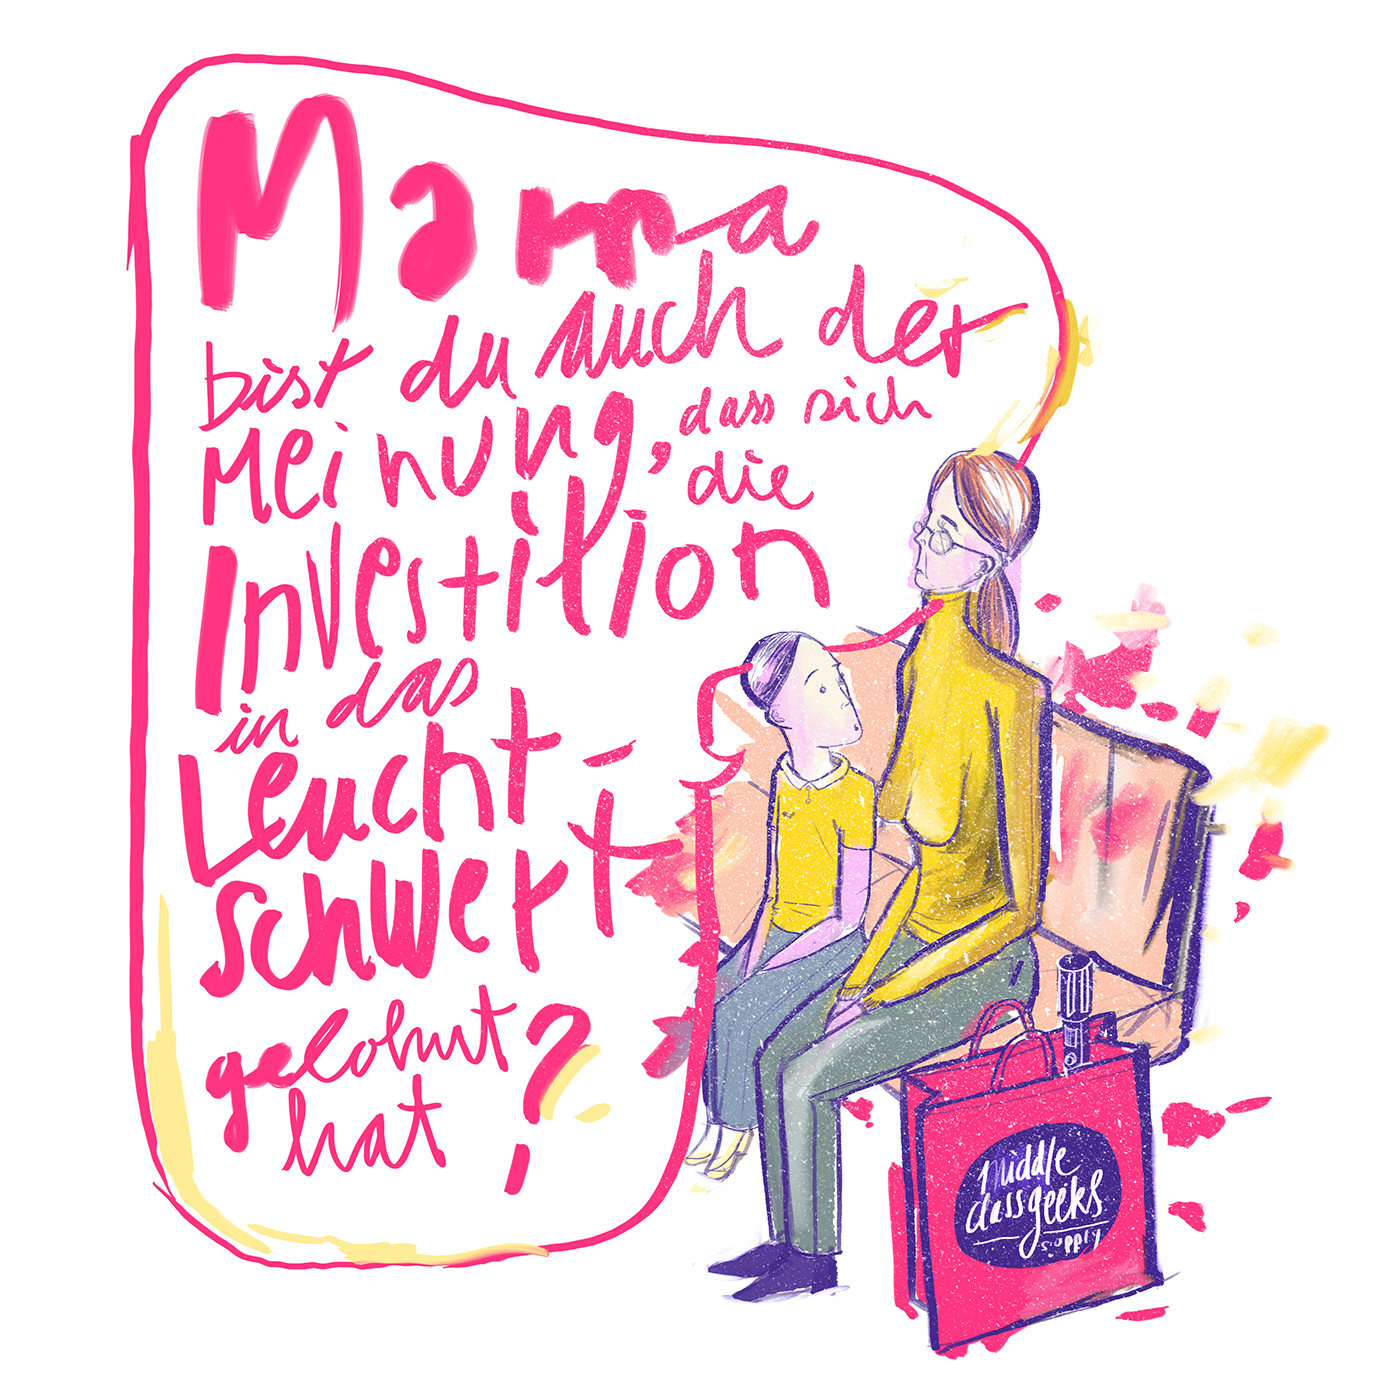 Mama
bist du auch der
Meinung, dass sich
die
Investition
in das
Leucht-
schwert
gelohnt
hat?
middle
class geeks
supply